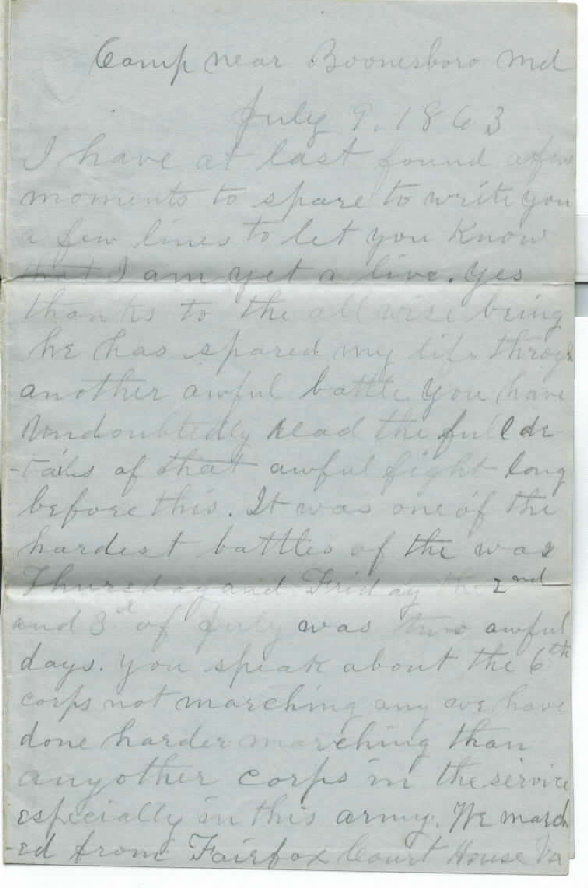 Camp near Boonesboro Md
July 9. 1863
I have at last found a few
moments to spare to write you
a few lines to let you know
that I am yet a live. yes
thanks to the all wise being
he has spared my life throug
another awful battle. you have
undoubtedly read the full de
-tails of that awful fight long
before this. It was one of the
hardest battles of the war
Thursday and Friday the 2nd
and 3d of July was two awful
days. you speak about the 6th
corps not marching any we have
done harder marching than
anyother corps in the service
especially in this army. We march
-ed from Fairfax Court House Va